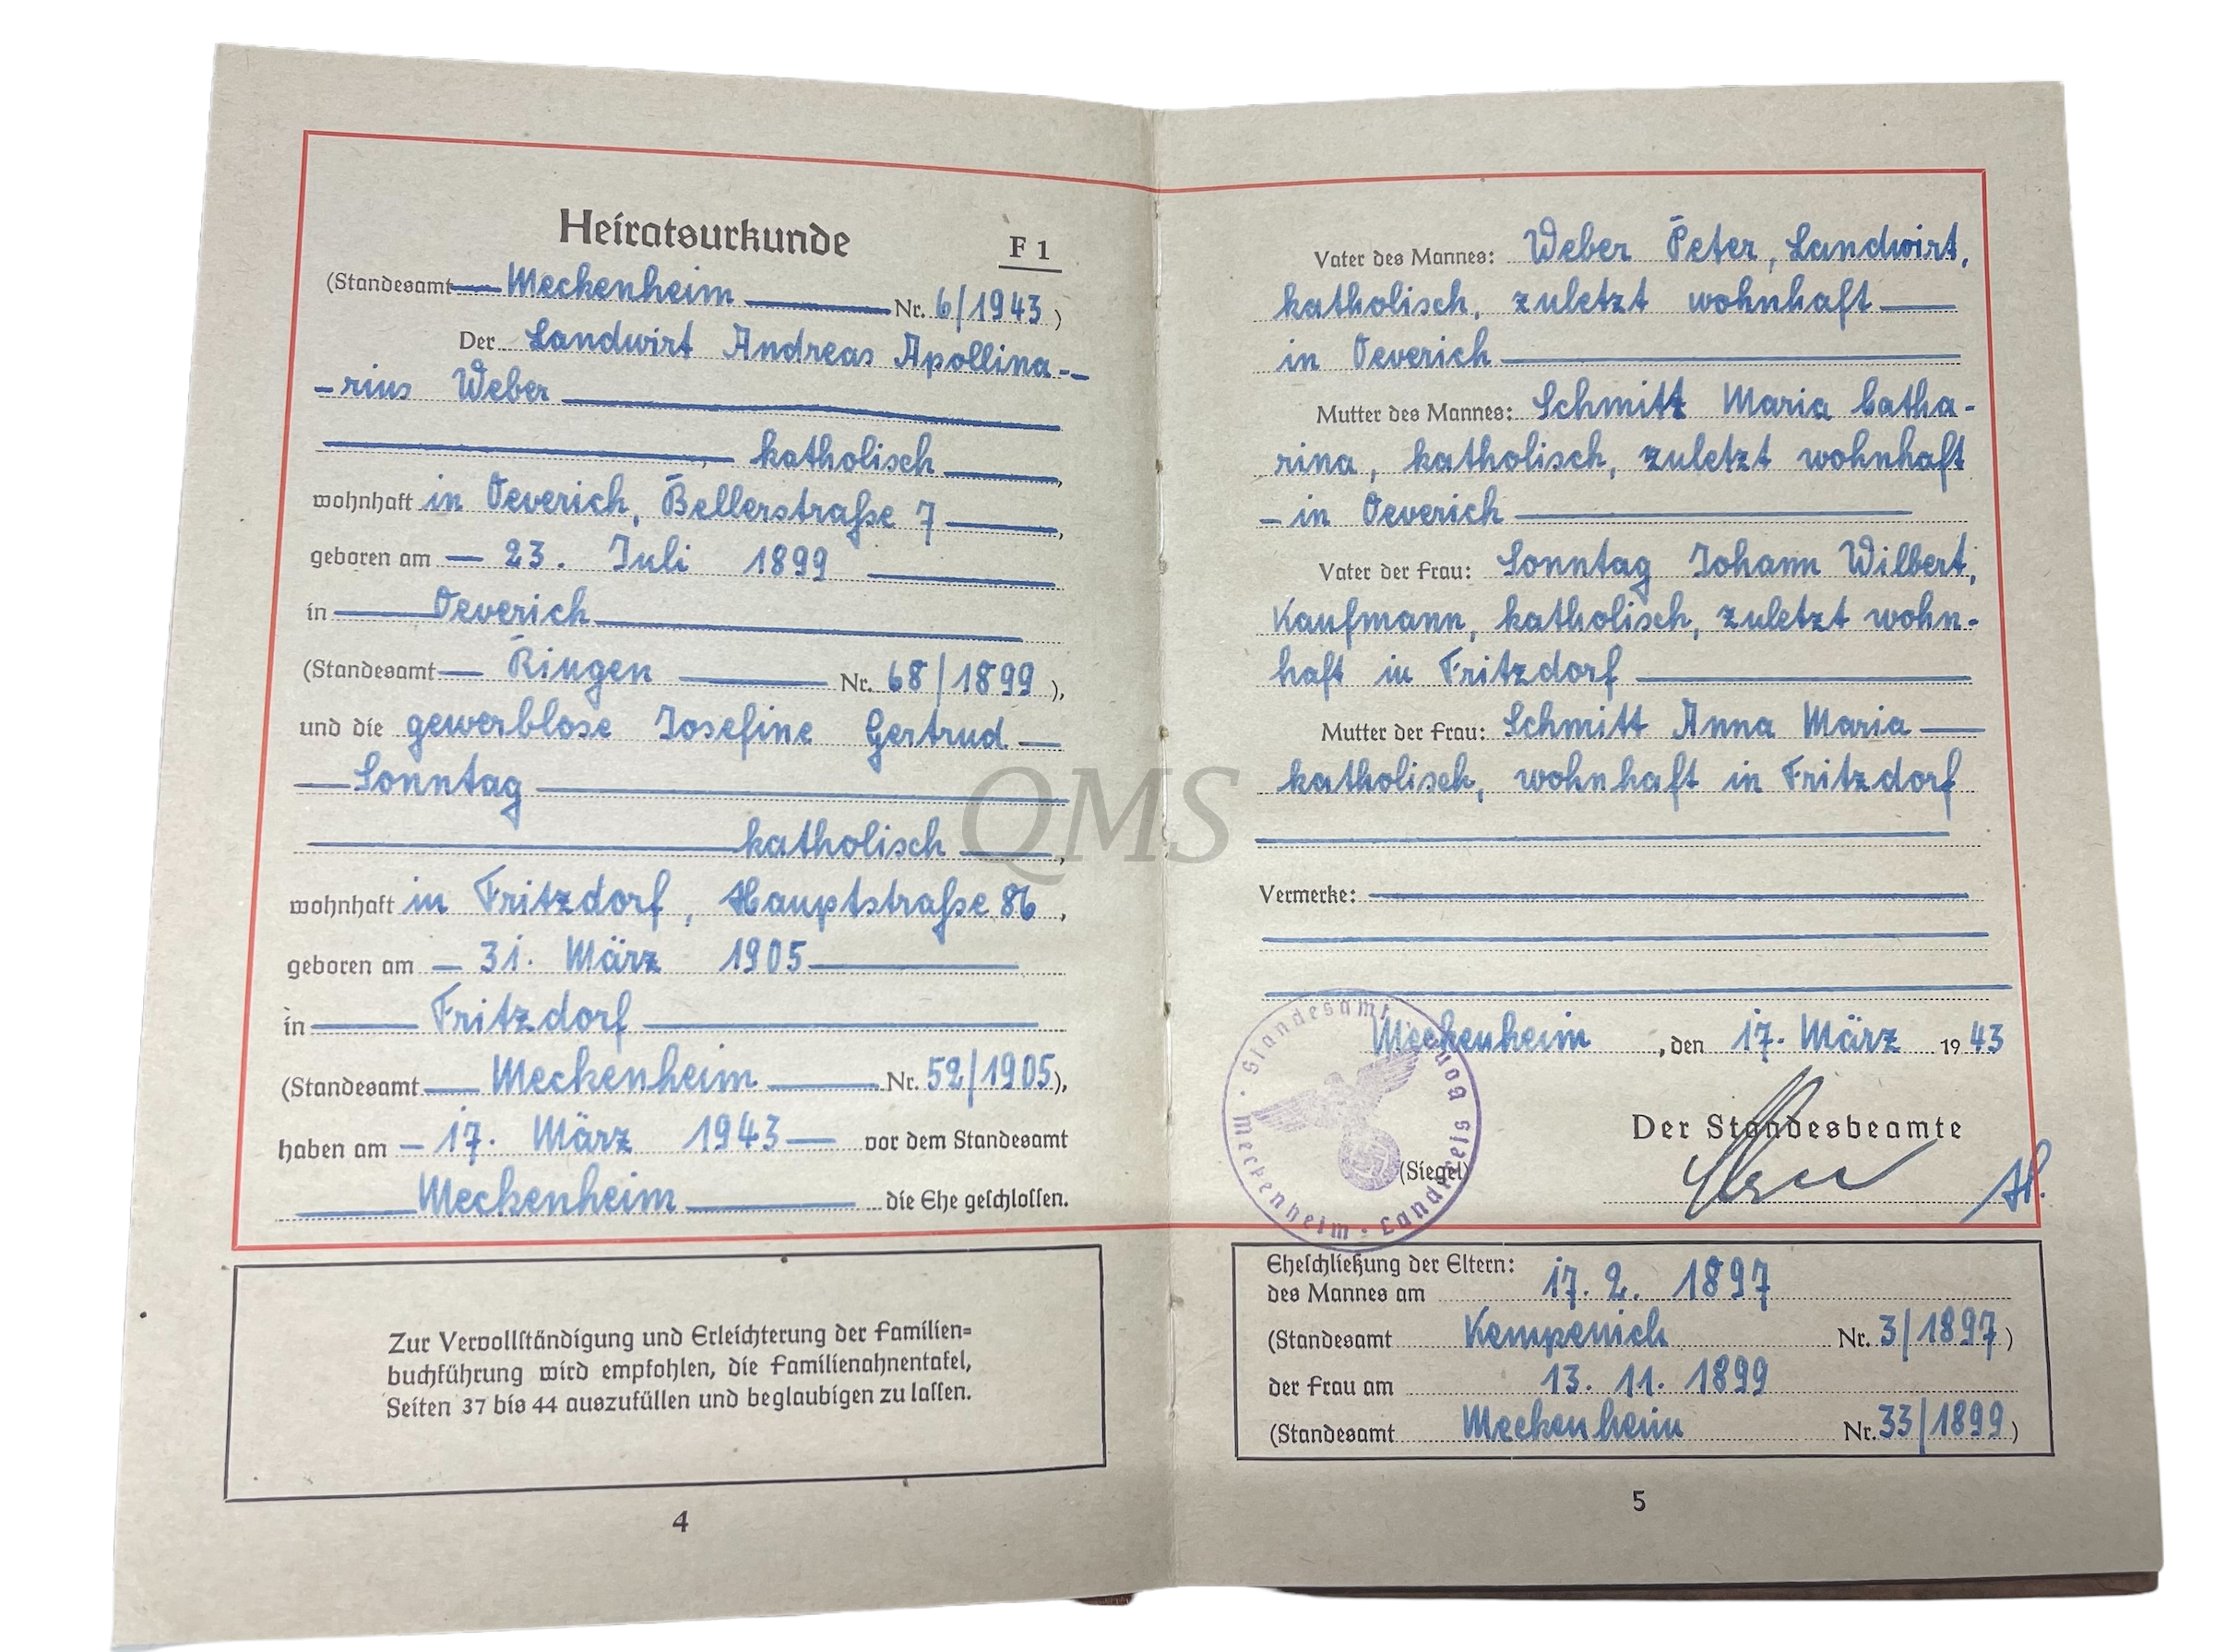 Heiratsurkunde F 1
(Standesamt Meckenheim Nr. 6/1943)
Der Landwirt Andreas Apollina-
-rius Weber
, katholisch,
wohnhaft in Oeverich, Bellerstraße 7,
geboren am 23. Juli 1899
in Oeverich
(Standesamt Ringen Nr. 68/1899),
und die gewerblose Josefine Gertrud
Sonntag
katholisch,
wohnhaft in Fritzdorf, Hauptstraße 86,
geboren am 31. März 1905
in Fritzdorf
(Standesamt Meckenheim Nr. 52/1905),
haben am 17. März 1943 vor dem Standesamt
Meckenheim die Ehe geschlossen.
Zur Vervollständigung und Erleichterung der Familien-
buchführung wird empfohlen, die Familienahnentafel,
Seiten 37 bis 44 auszufüllen und beglaubigen zu lassen.
4
Vater des Mannes: Weber Peter, Landwirt,
katholisch, zuletzt wohnhaft
in Oeverich
Mutter des Mannes: Schmitt Maria Catha-
rina, katholisch, zuletzt wohnhaft
in Oeverich
Vater der Frau: Sonntag Johann Wilbert,
Kaufmann, katholisch, zuletzt wohn-
haft in Fritzdorf
Mutter der Frau: Schmitt Anna Maria
katholisch, wohnhaft in Fritzdorf
Vermerke:
Meckenheim, den 17. März 1943
Der Standesbeamte
(Siegel)
Standesamt Meckenheim · Landkreis Bonn
Eheschließung der Eltern:
des Mannes am 17. 2. 1897
(Standesamt Kempenich Nr. 3/1897)
der Frau am 13. 11. 1899
(Standesamt Meckenheim Nr. 33/1899)
5
QMS